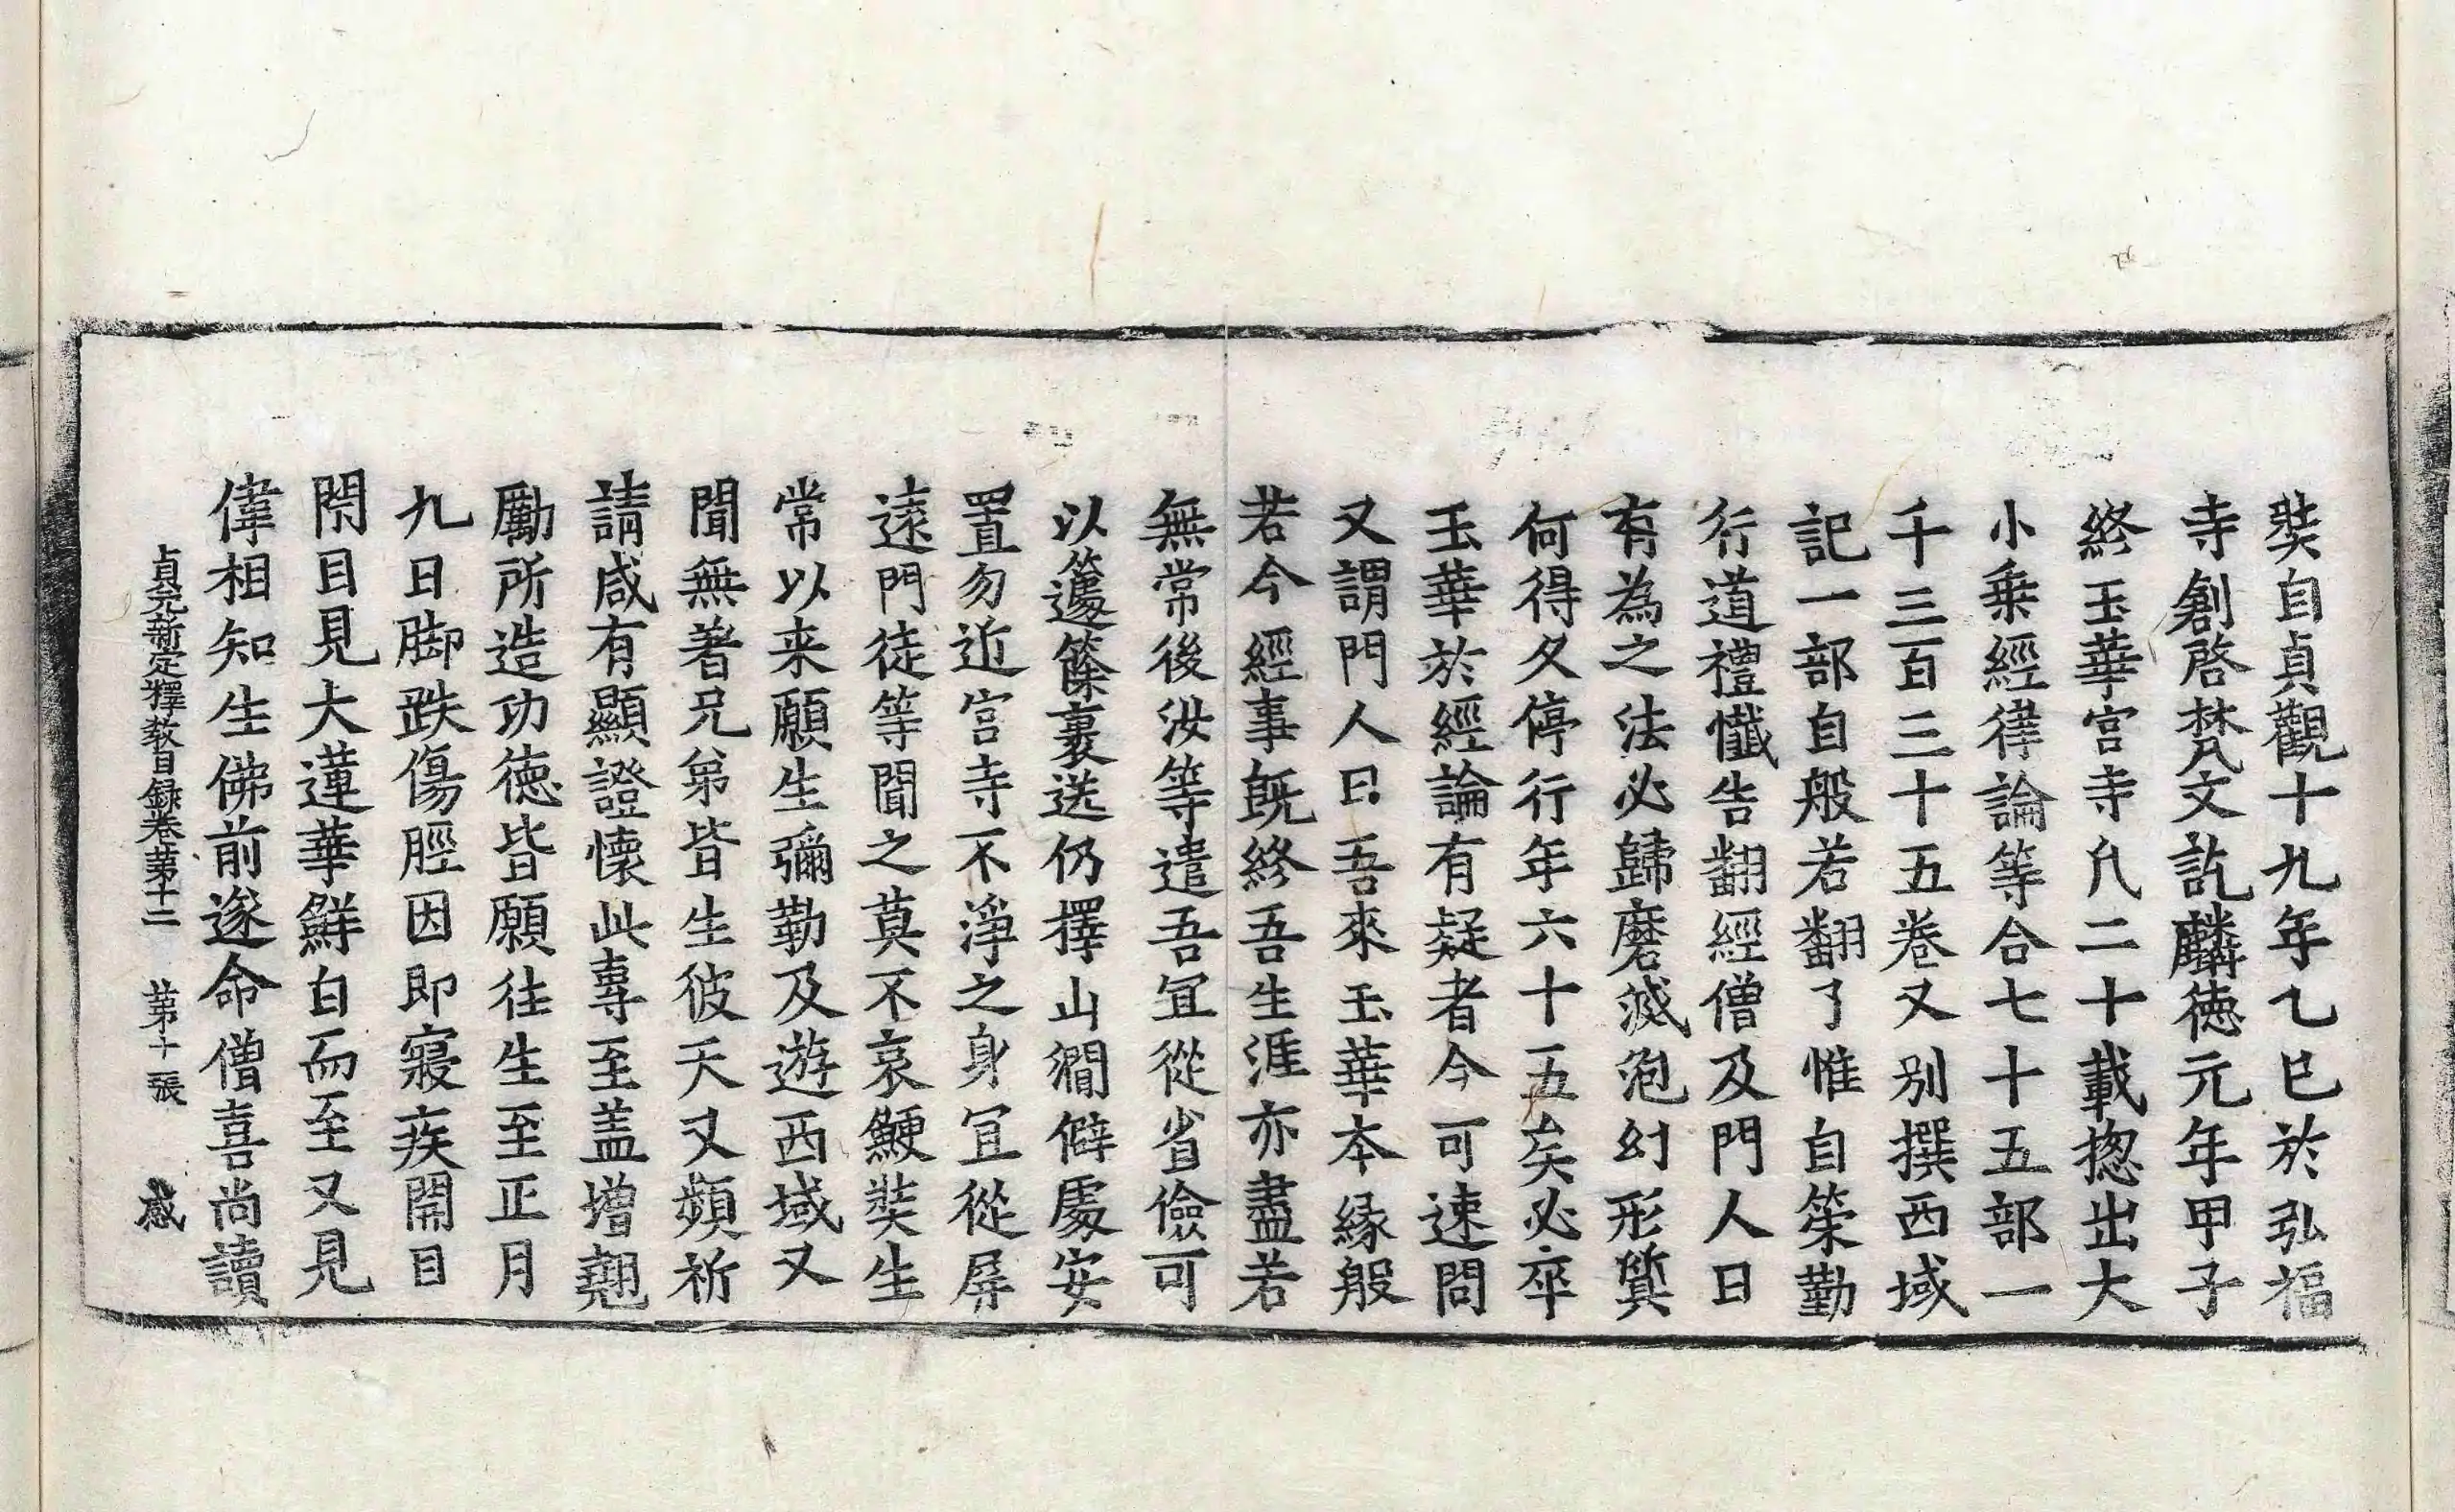 奘自貞觀十九年乙巳於弘福
寺創啓梵文訖麟徳元年甲子
終玉華宮寺凡二十載揔出大
小乗經律論等合七十五部一
千三百三十五卷又別撰西域
記一部自般若翻了惟自策勤
行道禮懺告翻經僧及門人曰
有為之法必歸磨滅泡幻形質
何得久停行年六十五矣必卒
玉華於經論有疑者今可速問
又謂門人曰吾來玉華本緣般
若今經事既終吾生涯亦盡若
無常後汝等遣吾冝從省儉可
以籧篨裹送仍擇山澗僻處安
置勿近宫寺不淨之身冝從屏
遠門徒等聞之莫不哀鯁奘生
常以来願生彌勒及遊西域又
聞無著兄弟皆生彼天又頻祈
請咸有顯證懷此專至盖增翹
勵所造功徳皆願往生至正月
九日脚跌傷脛因即寢疾開目
閇目見大蓮華鮮白而至又見
偉相知生佛前遂命僧喜尚讀
貞元新定釋教目録卷第十二 第十張 感